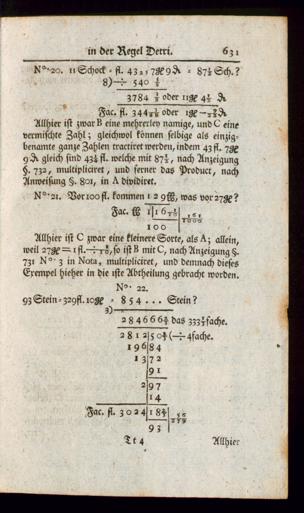 in der Regel Detri. 631
No. 20. 11 Schock - fl. 432, 7 gℓ 9 ₰ = 87½ Sch.?
8) ÷ 540
3784 oder 11 gℓ 4½ ₰
Allhier ist zwar B eine mehrerley namige, und C eine
vermischte Zahl; gleichwol können selbige als einzig-
benamte ganze Zahlen tractiret werden, indem 43 fl. 7 gℓ
9 ₰ gleich sind 43¼ fl. welche mit 87½, nach Anzeigung
§. 732, multipliciret, und ferner das Product, nach
Anweisung §. 801, in A dividiret.
No. 21. Vor 100 fl. kommen 129 ℔, was vor 27 gℓ?
Fac. ℔ 1|16
100
Allhier ist C zwar eine kleinere Sorte, als A; allein,
weil 27 gℓ = 1 fl. ÷ so ist B mit C, nach Anzeigung §.
731 No. 3 in Nota, multipliciret, und demnach dieses
Exempel hieher in die 1ste Abtheilung gebracht worden.
No. 22.
93 Stein - 329 fl. 10 gℓ - 854 ... Stein?
3)
284666⅔ das 333⅓fache.
2812|50 (÷ 4fache.
196|84
13|72
|91
2|97
|14
Fac. fl. 3024|18
93
Tt 4 Allhier